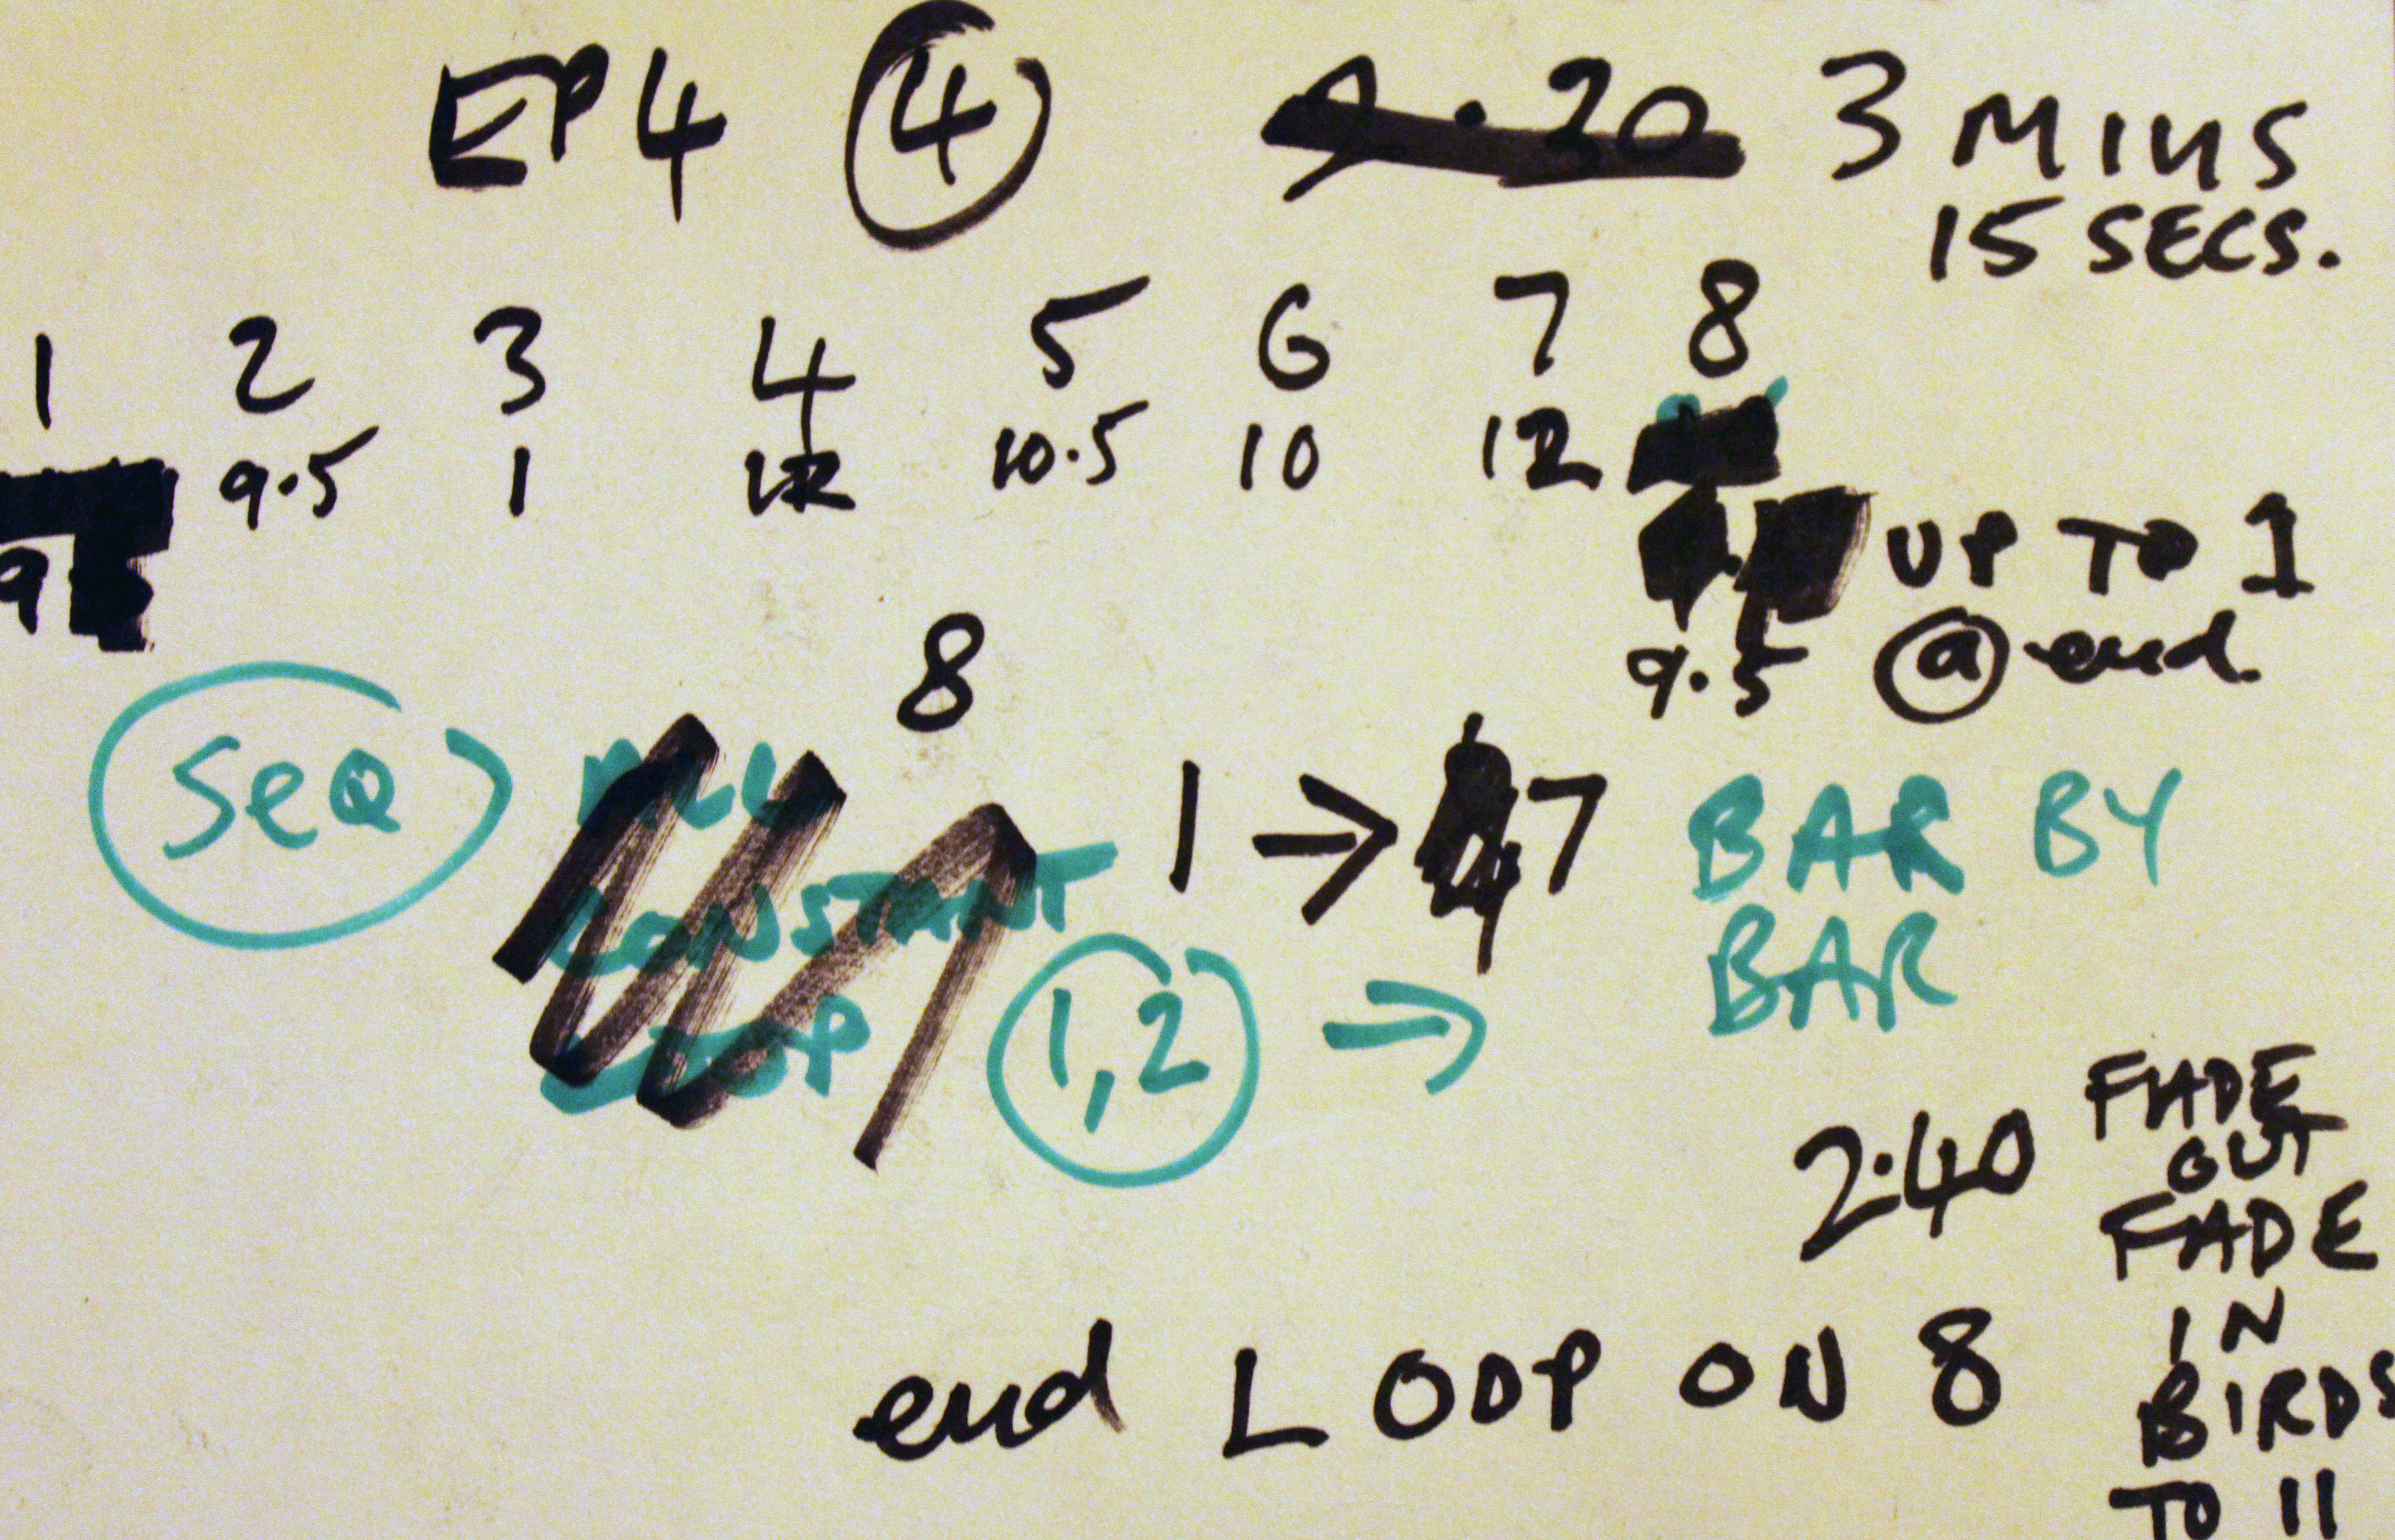 EP4 4 3 MINS
15 SECS.
1 2 3 4 5 6 7 8
9.5 1 12 10.5 10 12
9 UP TO 1
9.5 @ end
8
SEQ 1 → 7 BAR BY
CONSTANT BAR
LOOP 1,2 →
2.40 FADE
OUT
FADE
IN
end LOOP ON 8 BIRDS
TO 11